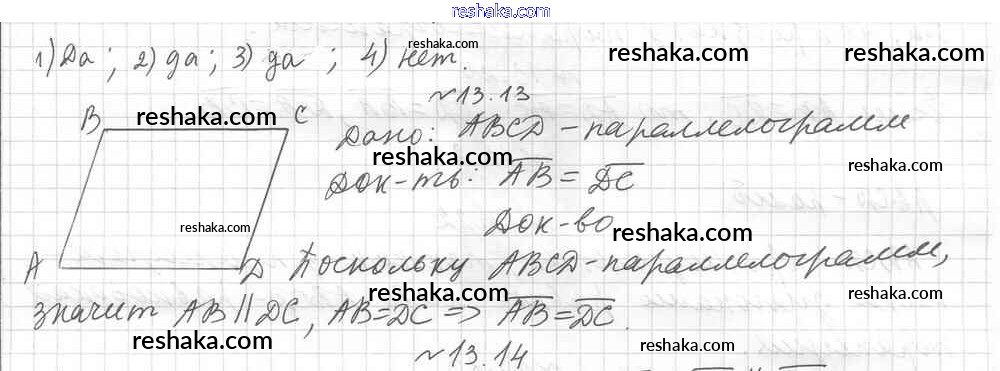 reshaka.com
1) Да; 2) да; 3) да; 4) нет.
reshaka.com
reshaka.com
reshaka.com
№13.13
B C
reshaka.com
Дано: ABCD - параллелограмм
reshaka.com
reshaka.com
Док-ть: AB = DC
Док-во
reshaka.com
reshaka.com
A D Поскольку ABCD - параллелограмм,
reshaka.com
reshaka.com
значит AB || DC, AB = DC => AB = DC.
reshaka.com
reshaka.com
№13.14